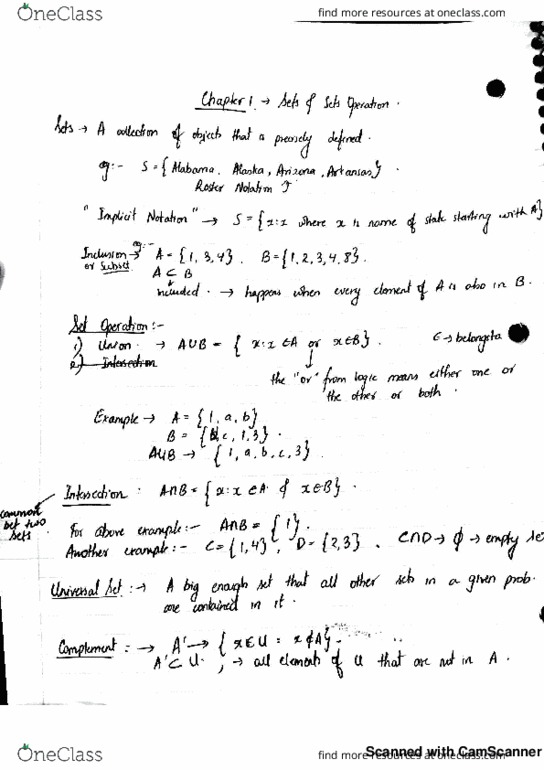 OneClass
find more resources at oneclass.com
Chapter 1. → Sets & Sets Operation.
Sets → A collection of objects that is precisely defined.
eg:- S = {Alabama, Alaska, Arizona, Arkansas}.
Roster Notation ↑
"Implicit Notation" → S = {x:x where x is name of state starting with A}
Inclusion → eg:- A = {1, 3, 4}. B = {1, 2, 3, 4, 8}.
or Subset
A ⊂ B
included. → happens when every element of A is also in B.
Set Operation:-
1) Union. → A∪B = { x:x ∈A or x∈B}. ∈→ belongs to
2) Intersection
the "or" from logic means either one or
the other or both.
Example → A = {1, a, b}
B = {b, c, 1, 3}.
A∪B → {1, a, b, c, 3}.
Intersection: A∩B = {x:x ∈A & x∈B}.
common
bet two
sets.
For above example:- A∩B = {1}.
Another example:- C = {1,4}, D = {2,3}. C∩D → ϕ → empty se
Universal Set: → A big enough set that all other sets in a given prob.
are contained in it.
Complement: → A' → {x∈U : x∉A}.
A' ⊂ U. ; → all elements of U that are not in A.
Scanned with CamScanner
OneClass
find more resources at oneclass.com